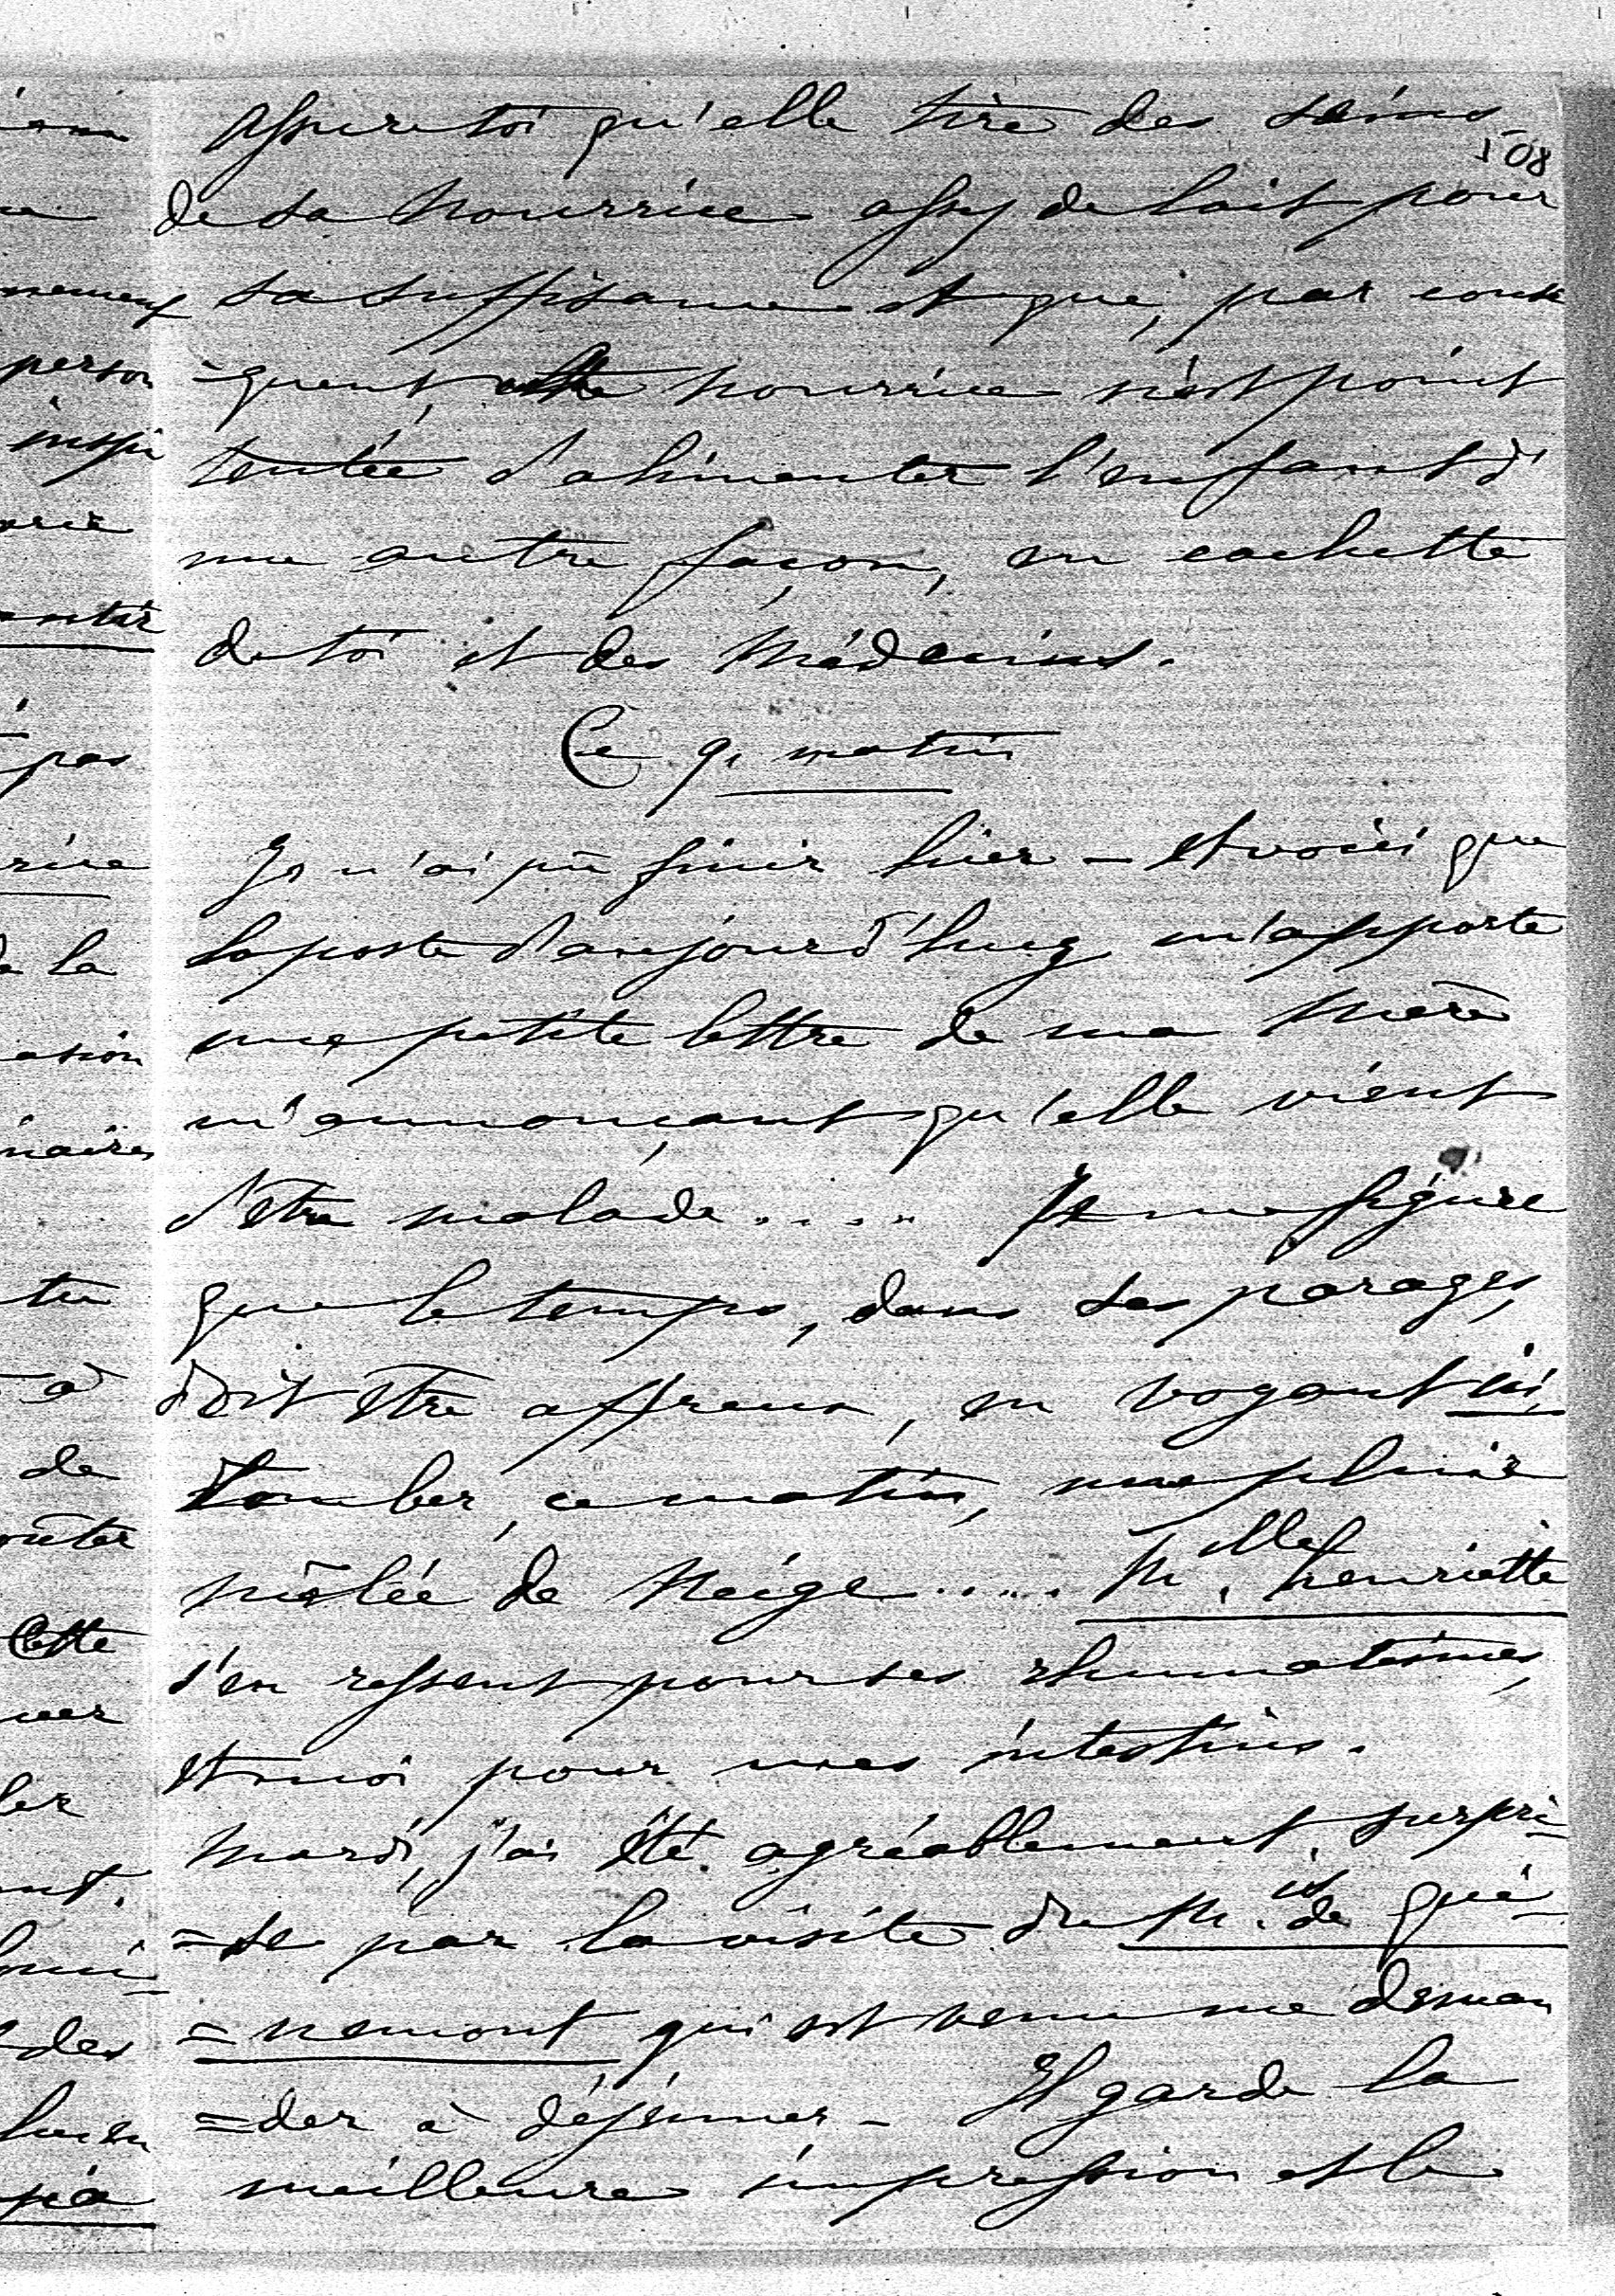 508
Assure toi qu'elle tire des seins
de sa nourrice assez de lait pour
sa suffisance et que, par consé
-quent, cette nourrice n'est point
tentée d'alimenter l'enfant d'
une autre façon, en cachette
de toi et des Médecins.
Ce 9, matin
Je n'ai pû finir hier – Et voici que
la poste d'aujourd'huy m'apporte
une petite lettre de ma Mère
m'annonçant qu'elle vient
d'être malade..... Je me figure
que le temps, dans ses parages,
doit être affreux, en voyant ici,
tomber, ce matin, une pluie
mêlée de Neige..... Melle henriette
s'en ressent pour ses rhumatismes,
et moi pour mes intestins.
Mardi, j'ai été agréablement surpri=
=se par la visite de M.is de Gué=
=nemont qui est venu me deman
=der à déjeuner – Il garde la
meilleure impression et le